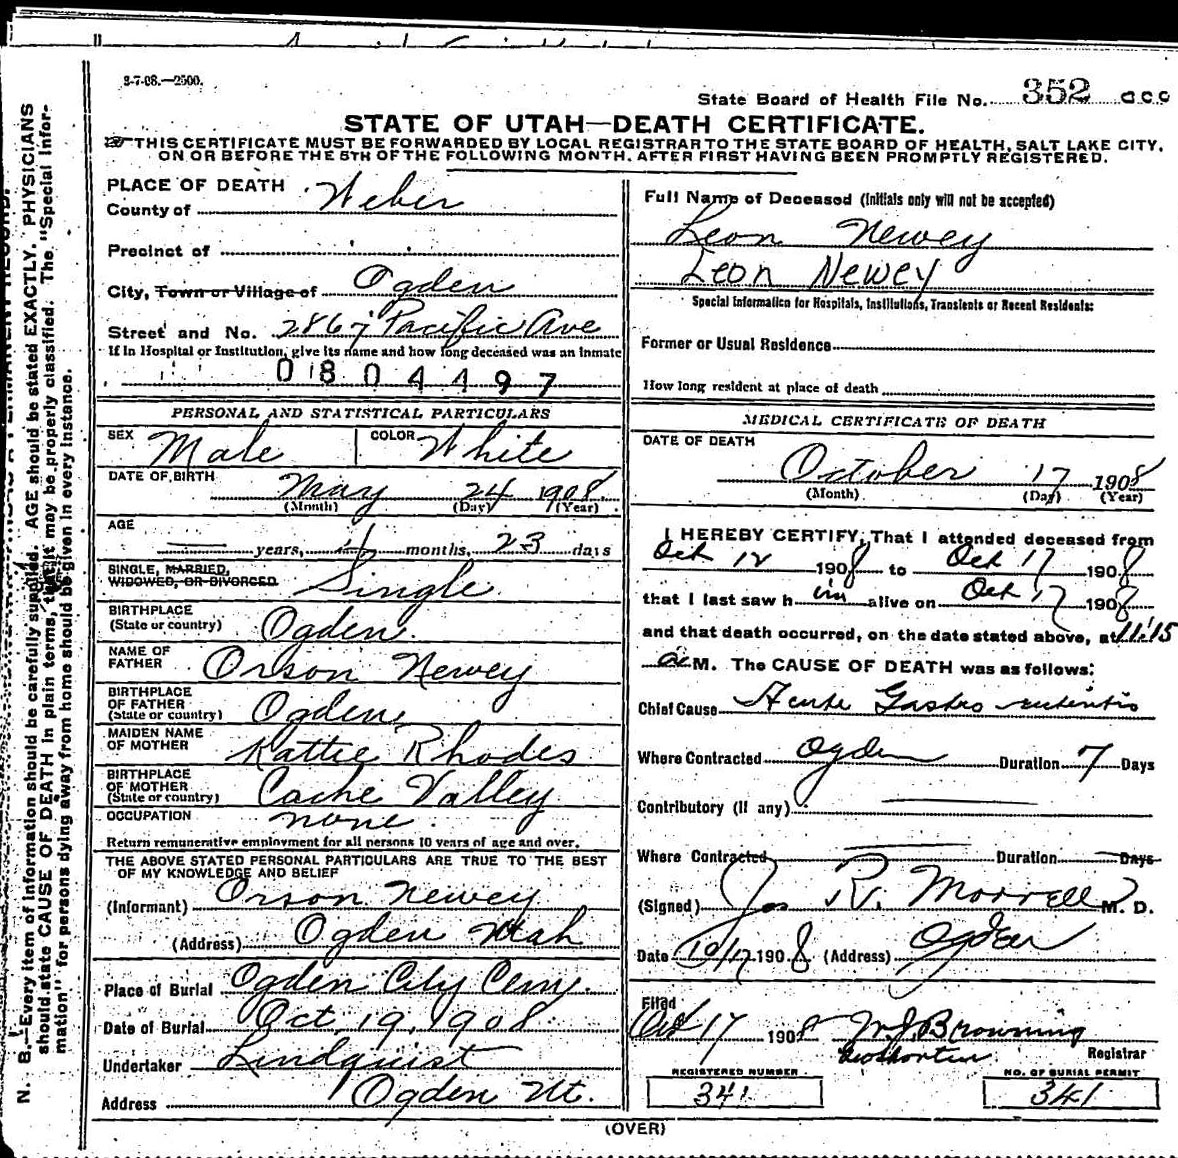 3-7-08.—2500.
State Board of Health File No. 352
STATE OF UTAH—DEATH CERTIFICATE.
THIS CERTIFICATE MUST BE FORWARDED BY LOCAL REGISTRAR TO THE STATE BOARD OF HEALTH, SALT LAKE CITY,
ON OR BEFORE THE 5TH OF THE FOLLOWING MONTH, AFTER FIRST HAVING BEEN PROMPTLY REGISTERED.
PLACE OF DEATH
County of Weber
Precinct of
City, Town or Village of Ogden
Street and No. 2867 Pacific Ave
If in Hospital or Institution, give its name and how long deceased was an inmate
0804497
PERSONAL AND STATISTICAL PARTICULARS
SEX Male COLOR White
DATE OF BIRTH May 24 1908
(Month) (Day) (Year)
AGE
— years, months, 23 days
SINGLE, MARRIED,
WIDOWED, OR DIVORCED Single
BIRTHPLACE
(State or country) Ogden
NAME OF
FATHER Orson Newey
BIRTHPLACE
OF FATHER
(State or country) Ogden
MAIDEN NAME
OF MOTHER Kattie Rhodes
BIRTHPLACE
OF MOTHER
(State or country) Cache Valley
OCCUPATION none
Return remunerative employment for all persons 10 years of age and over.
THE ABOVE STATED PERSONAL PARTICULARS ARE TRUE TO THE BEST
OF MY KNOWLEDGE AND BELIEF
(Informant) Orson Newey
(Address) Ogden Utah
Place of Burial Ogden City Cem.
Date of Burial Oct. 19, 1908
Undertaker Lindquist
Address Ogden Ut.
Full Name of Deceased (Initials only will not be accepted)
Leon Newey
Leon Newey
Special Information for Hospitals, Institutions, Transients or Recent Residents:
Former or Usual Residence
How long resident at place of death
MEDICAL CERTIFICATE OF DEATH
DATE OF DEATH
October 17 1908
(Month) (Day) (Year)
I HEREBY CERTIFY, That I attended deceased from
Oct 12 1908 to Oct 17 1908
that I last saw him alive on Oct 17 1908
and that death occurred, on the date stated above, at 11:15
a M. The CAUSE OF DEATH was as follows:
Chief Cause Acute Gastro enteritis
Where Contracted Ogden Duration 7 Days
Contributory (if any)
Where Contracted Duration Days
(Signed) Jos R. Morrell M. D.
Date 10/17 1908 (Address) Ogden
Filed
Oct 17 1908 Browning
Registrar
REGISTERED NUMBER
341
NO. OF BURIAL PERMIT
341
(OVER)
N. B.—Every item of information should be carefully supplied. AGE should be stated EXACTLY. PHYSICIANS
should state CAUSE OF DEATH in plain terms, that it may be properly classified. The "Special Infor-
mation" for persons dying away from home should be given in every instance.